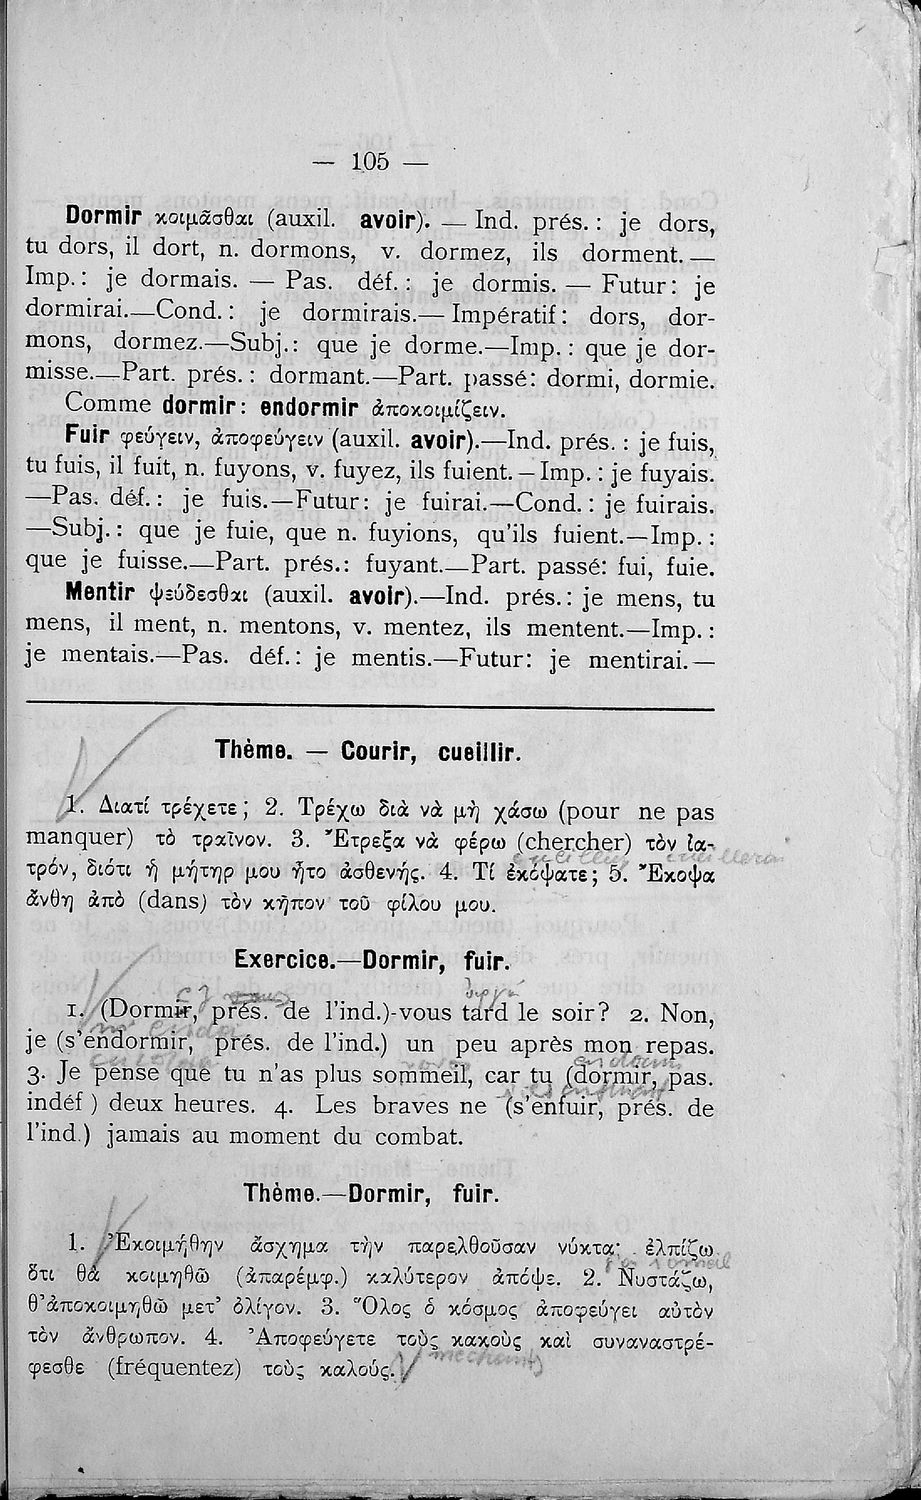 — 105 —
Dormir κοιμᾶσθαι (auxil. avoir). — Ind. prés. : je dors,
tu dors, il dort, n. dormons, v. dormez, ils dorment. —
Imp. : je dormais. — Pas. déf. : je dormis. — Futur : je
dormirai.—Cond. : je dormirais.— Impératif : dors, dor-
mons, dormez.—Subj.: que je dorme.—Imp. : que je dor-
misse.—Part. prés. : dormant.—Part. passé: dormi, dormie.
Comme dormir: endormir ἀποκοιμίζειν.
Fuir φεύγειν, ἀποφεύγειν (auxil. avoir).—Ind. prés. : je fuis,
tu fuis, il fuit, n. fuyons, v. fuyez, ils fuient. – Imp. : je fuyais.
—Pas. déf. : je fuis.—Futur : je fuirai.—Cond. : je fuirais.
—Subj. : que je fuie, que n. fuyions, qu'ils fuient.—Imp. :
que je fuisse.—Part. prés.: fuyant.—Part. passé: fui, fuie.
Mentir ψεύδεσθαι (auxil. avoir).—Ind. prés. : je mens, tu
mens, il ment, n. mentons, v. mentez, ils mentent.—Imp. :
je mentais.—Pas. déf. : je mentis.—Futur : je mentirai. —
Thème. — Courir, cueillir.
1. Διατί τρέχετε ; 2. Τρέχω διὰ νὰ μὴ χάσω (pour ne pas
manquer) τὸ τραῖνον. 3. Ἔτρεξα νὰ φέρω (chercher) τὸν ἰα-
τρόν, διότι ἡ μήτηρ μου ἦτο ἀσθενής. 4. Τί ἐκόψατε ; 5. Ἔκοψα
ἄνθη ἀπὸ (dans) τὸν κῆπον τοῦ φίλου μου.
Exercice.—Dormir, fuir.
1. (Dormir, prés. de l'ind.)-vous tard le soir? 2. Non,
je (s'endormir, prés. de l'ind.) un peu après mon repas.
3. Je pense que tu n'as plus sommeil, car tu (dormir, pas.
indéf ) deux heures. 4. Les braves ne (s'enfuir, prés. de
l'ind.) jamais au moment du combat.
Thème.—Dormir, fuir.
1. Ἐκοιμήθην ἄσχημα τὴν παρελθοῦσαν νύκτα· ἐλπίζω
ὅτι θὰ κοιμηθῶ (ἀπαρέμφ.) καλύτερον ἀπόψε. 2. Νυστάζω,
θ' ἀποκοιμηθῶ μετ' ὀλίγον. 3. Ὅλος ὁ κόσμος ἀποφεύγει αὐτὸν
τὸν ἄνθρωπον. 4. Ἀποφεύγετε τοὺς κακοὺς καὶ συναναστρέ-
φεσθε (fréquentez) τοὺς καλούς.
méchants